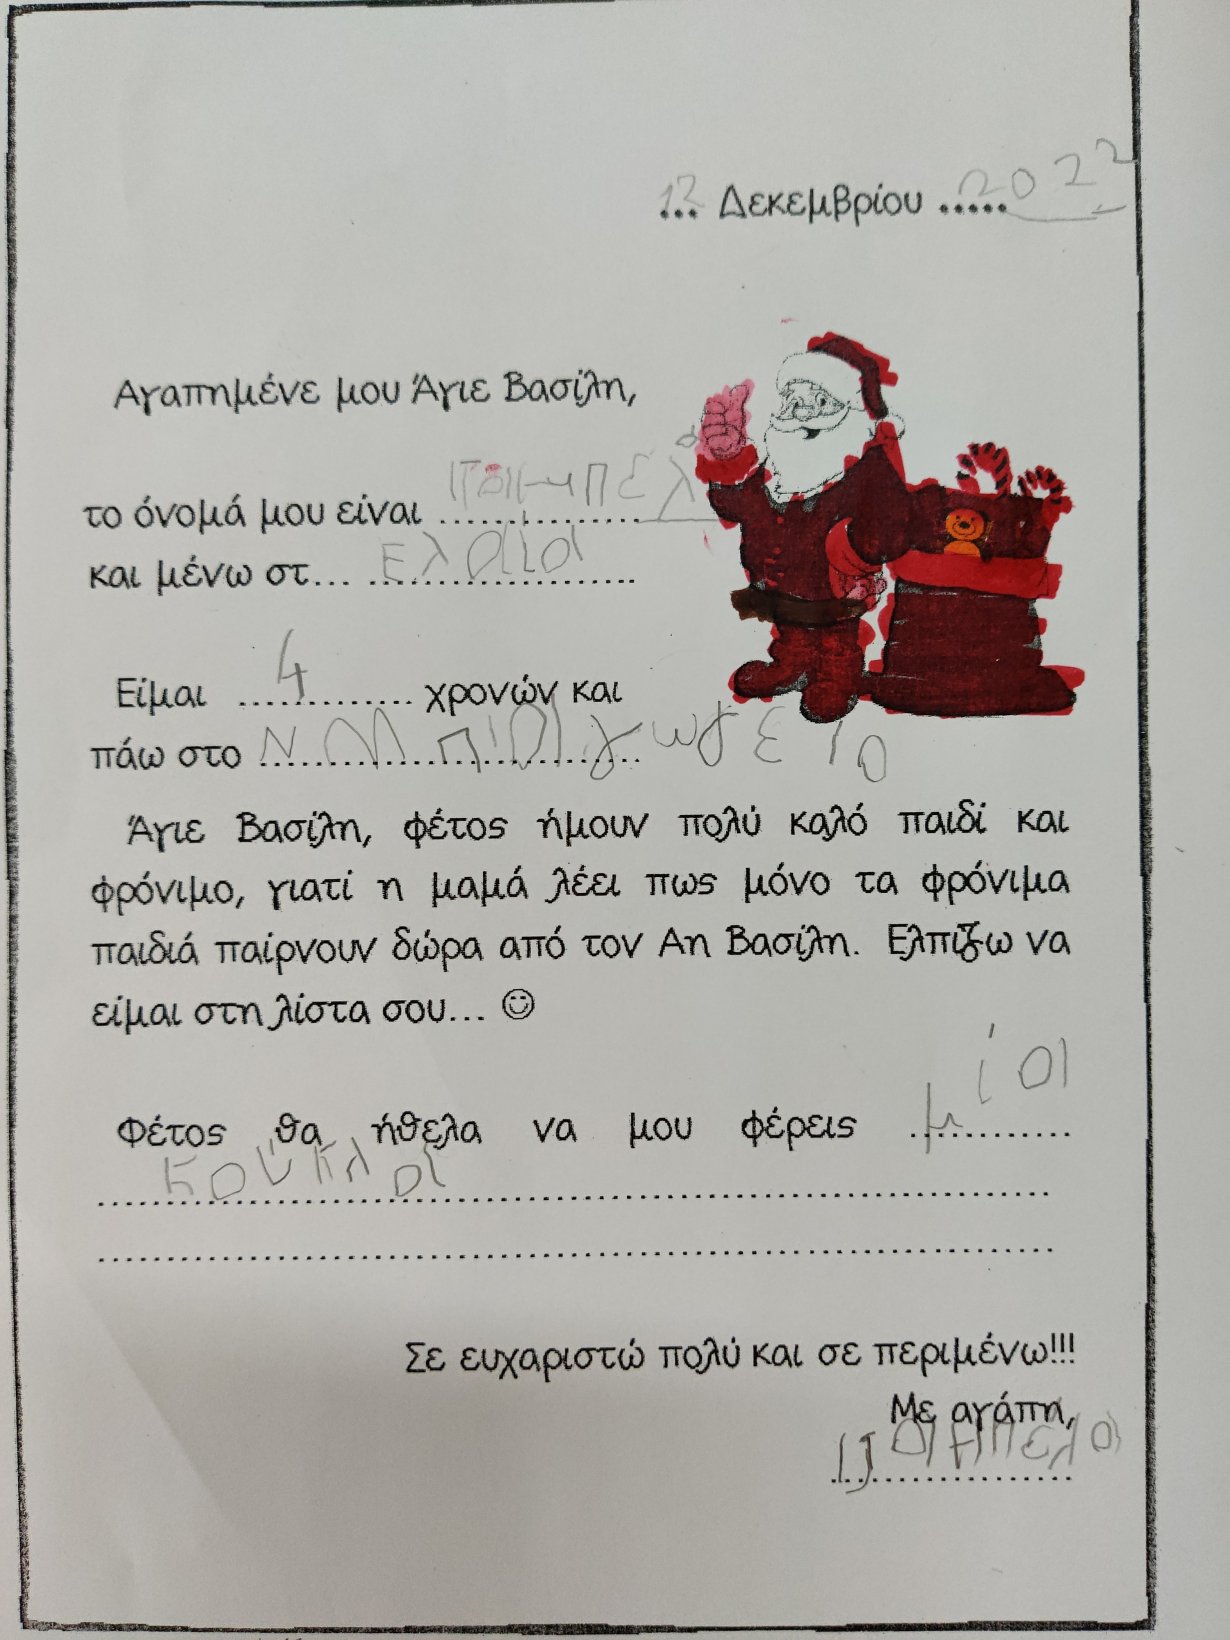 12 Δεκεμβρίου ..... 2022
Αγαπημένε μου Άγιε Βασίλη,
το όνομά μου είναι ...............
και μένω στ... ελαια
Είμαι 4 χρονών και
πάω στο νηπιαγωγειο
Άγιε Βασίλη, φέτος ήμουν πολύ καλό παιδί και
φρόνιμο, γιατί η μαμά λέει πως μόνο τα φρόνιμα
παιδιά παίρνουν δώρα από τον Αη Βασίλη. Ελπίζω να
είμαι στη λίστα σου... ☺
Φέτος θα ήθελα να μου φέρεις μία
κούκλα
Σε ευχαριστώ πολύ και σε περιμένω!!!
Με αγάπη,